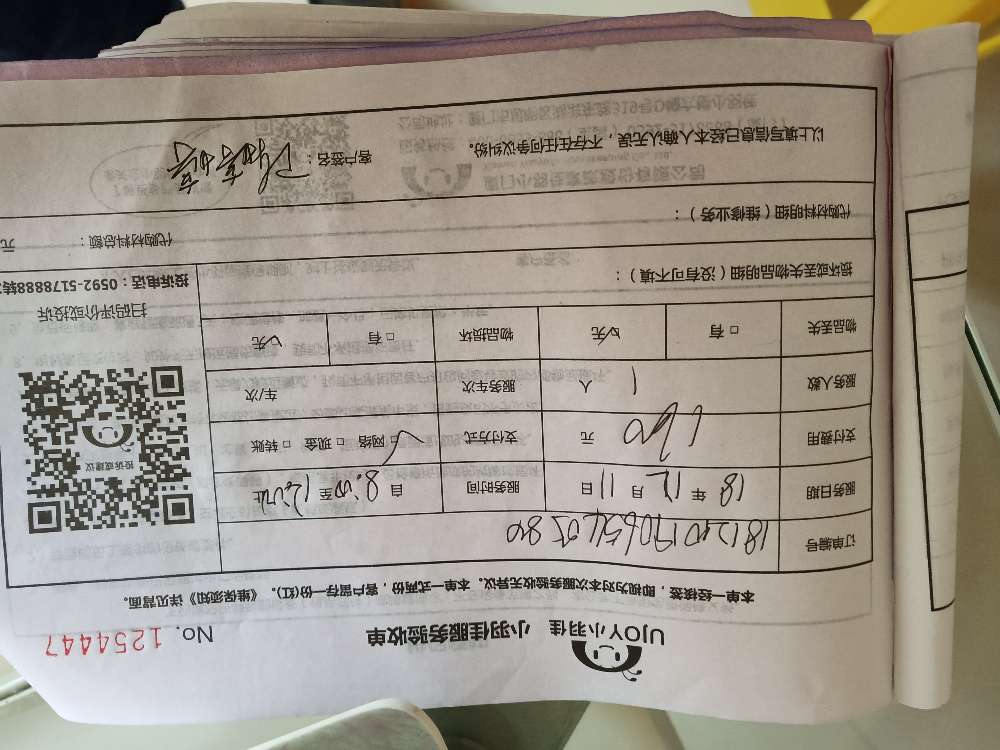 UJOY小羽佳 小羽佳服务验收单 No. 1254447
本单一经接签，即视为对本次服务验收无异议。本单一式两份，客户留存一份(红)。《维保须知》详见背面。
订单编号 1812101706540580
服务日期 18 年 12 月 11 日 服务时间 自 8:00 至 12:00止
支付费用 190 元 支付方式 □ 网络 □ 现金 □ 转账
服务人数 1 人 服务车次 车/次
物品丢失 □ 有 无 物品损坏 □ 有 无
投诉或建议
扫码评价或投诉
投诉电话：0592-5178888转
损坏或丢失物品明细（没有可不填）：
代购材料明细（维修业务）：
代购材料总额： 元
以上填写信息已经本人确认无误，不存在任何争议纠纷。 客户签名：